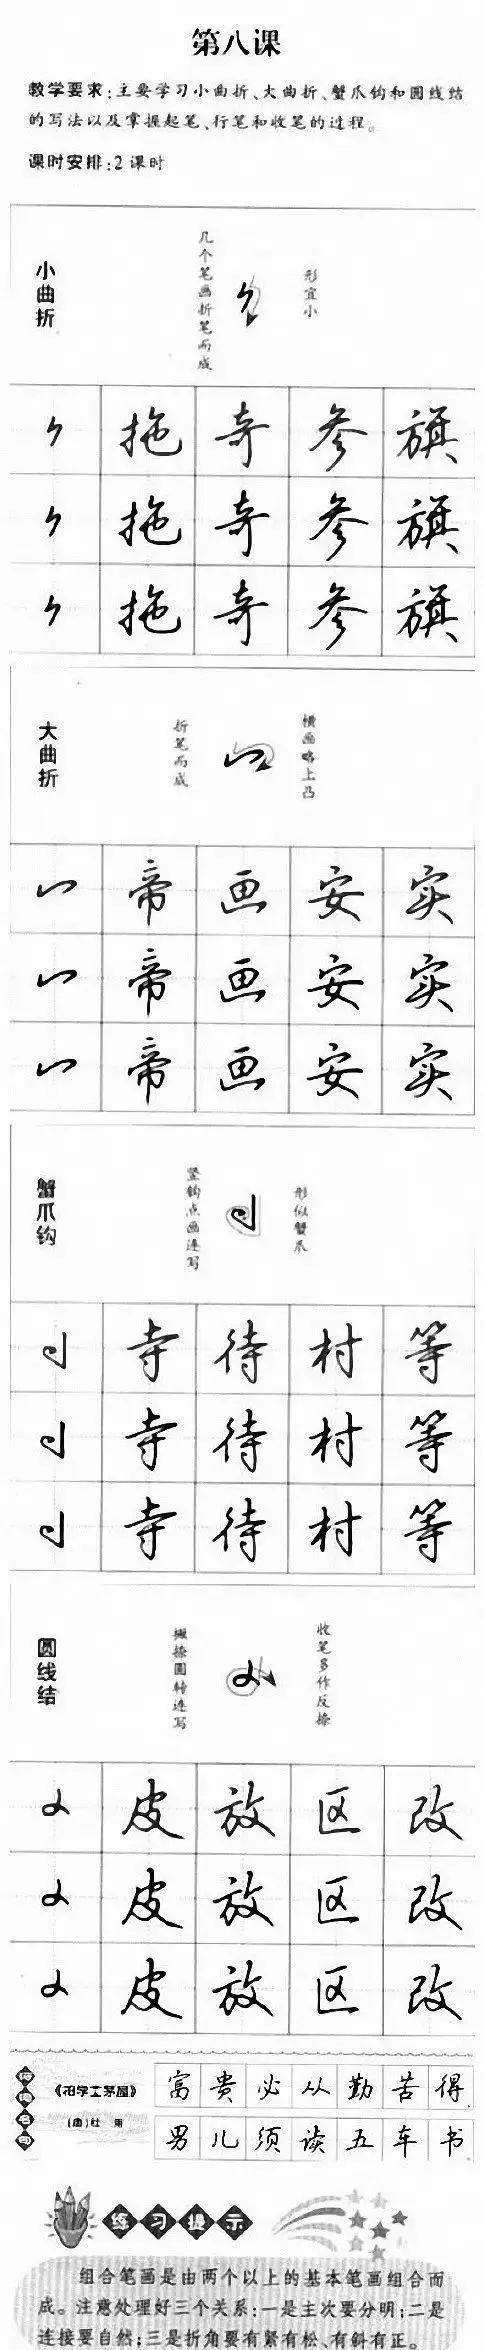 第八课
教学要求:主要学习小曲折、大曲折、蟹爪钩和圆线结
的写法以及掌握起笔、行笔和收笔的过程。
课时安排:2课时
小曲折
几个笔画折笔而成
形宜小
拖 奇 参 旗
拖 奇 参 旗
拖 奇 参 旗
大曲折
折笔而成
横画略上凸
帝 画 安 实
帝 画 安 实
帝 画 安 实
蟹爪钩
竖钩点画连写
形似蟹爪
寺 待 村 等
寺 待 村 等
寺 待 村 等
圆线结
撇捺圆转连写
收笔多作反捺
皮 放 区 改
皮 放 区 改
皮 放 区 改
名句
《柏学士茅屋》
(唐)杜甫
富贵必从勤苦得
男儿须读五车书
练习提示
组合笔画是由两个以上的基本笔画组合而
成。注意处理好三个关系:一是主次要分明;二是
连接要自然;三是折角要有紧有松、有斜有正。